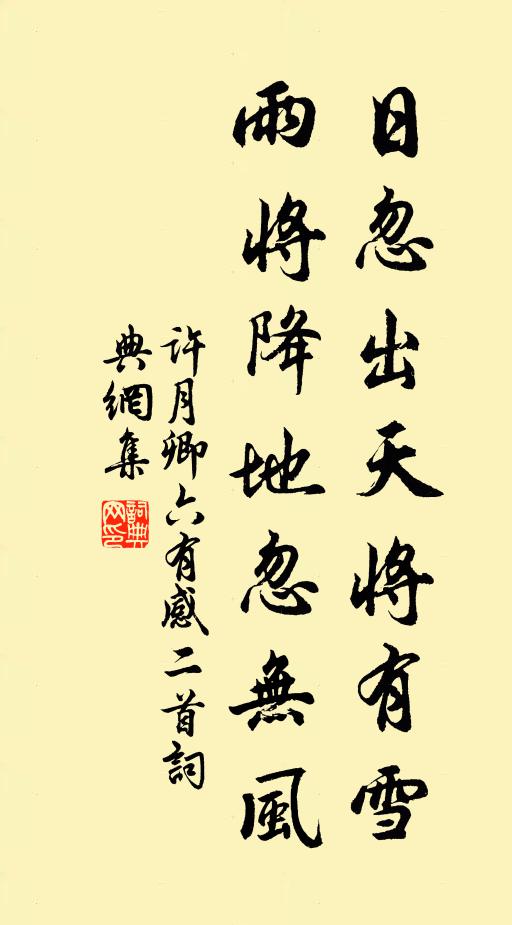 日忽出天將有雪
雨將降地忽無風
許月卿六有感二首詞
典網集
詞典網印